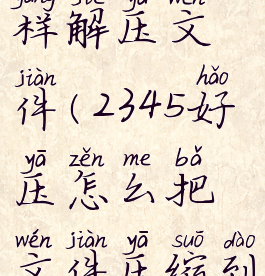 yàng jiě yā wén
样解压文
jiàn hǎo
件(2345好
yā zěn me bǎ
压怎么把
wén jiàn yā suō dào
文件压缩到